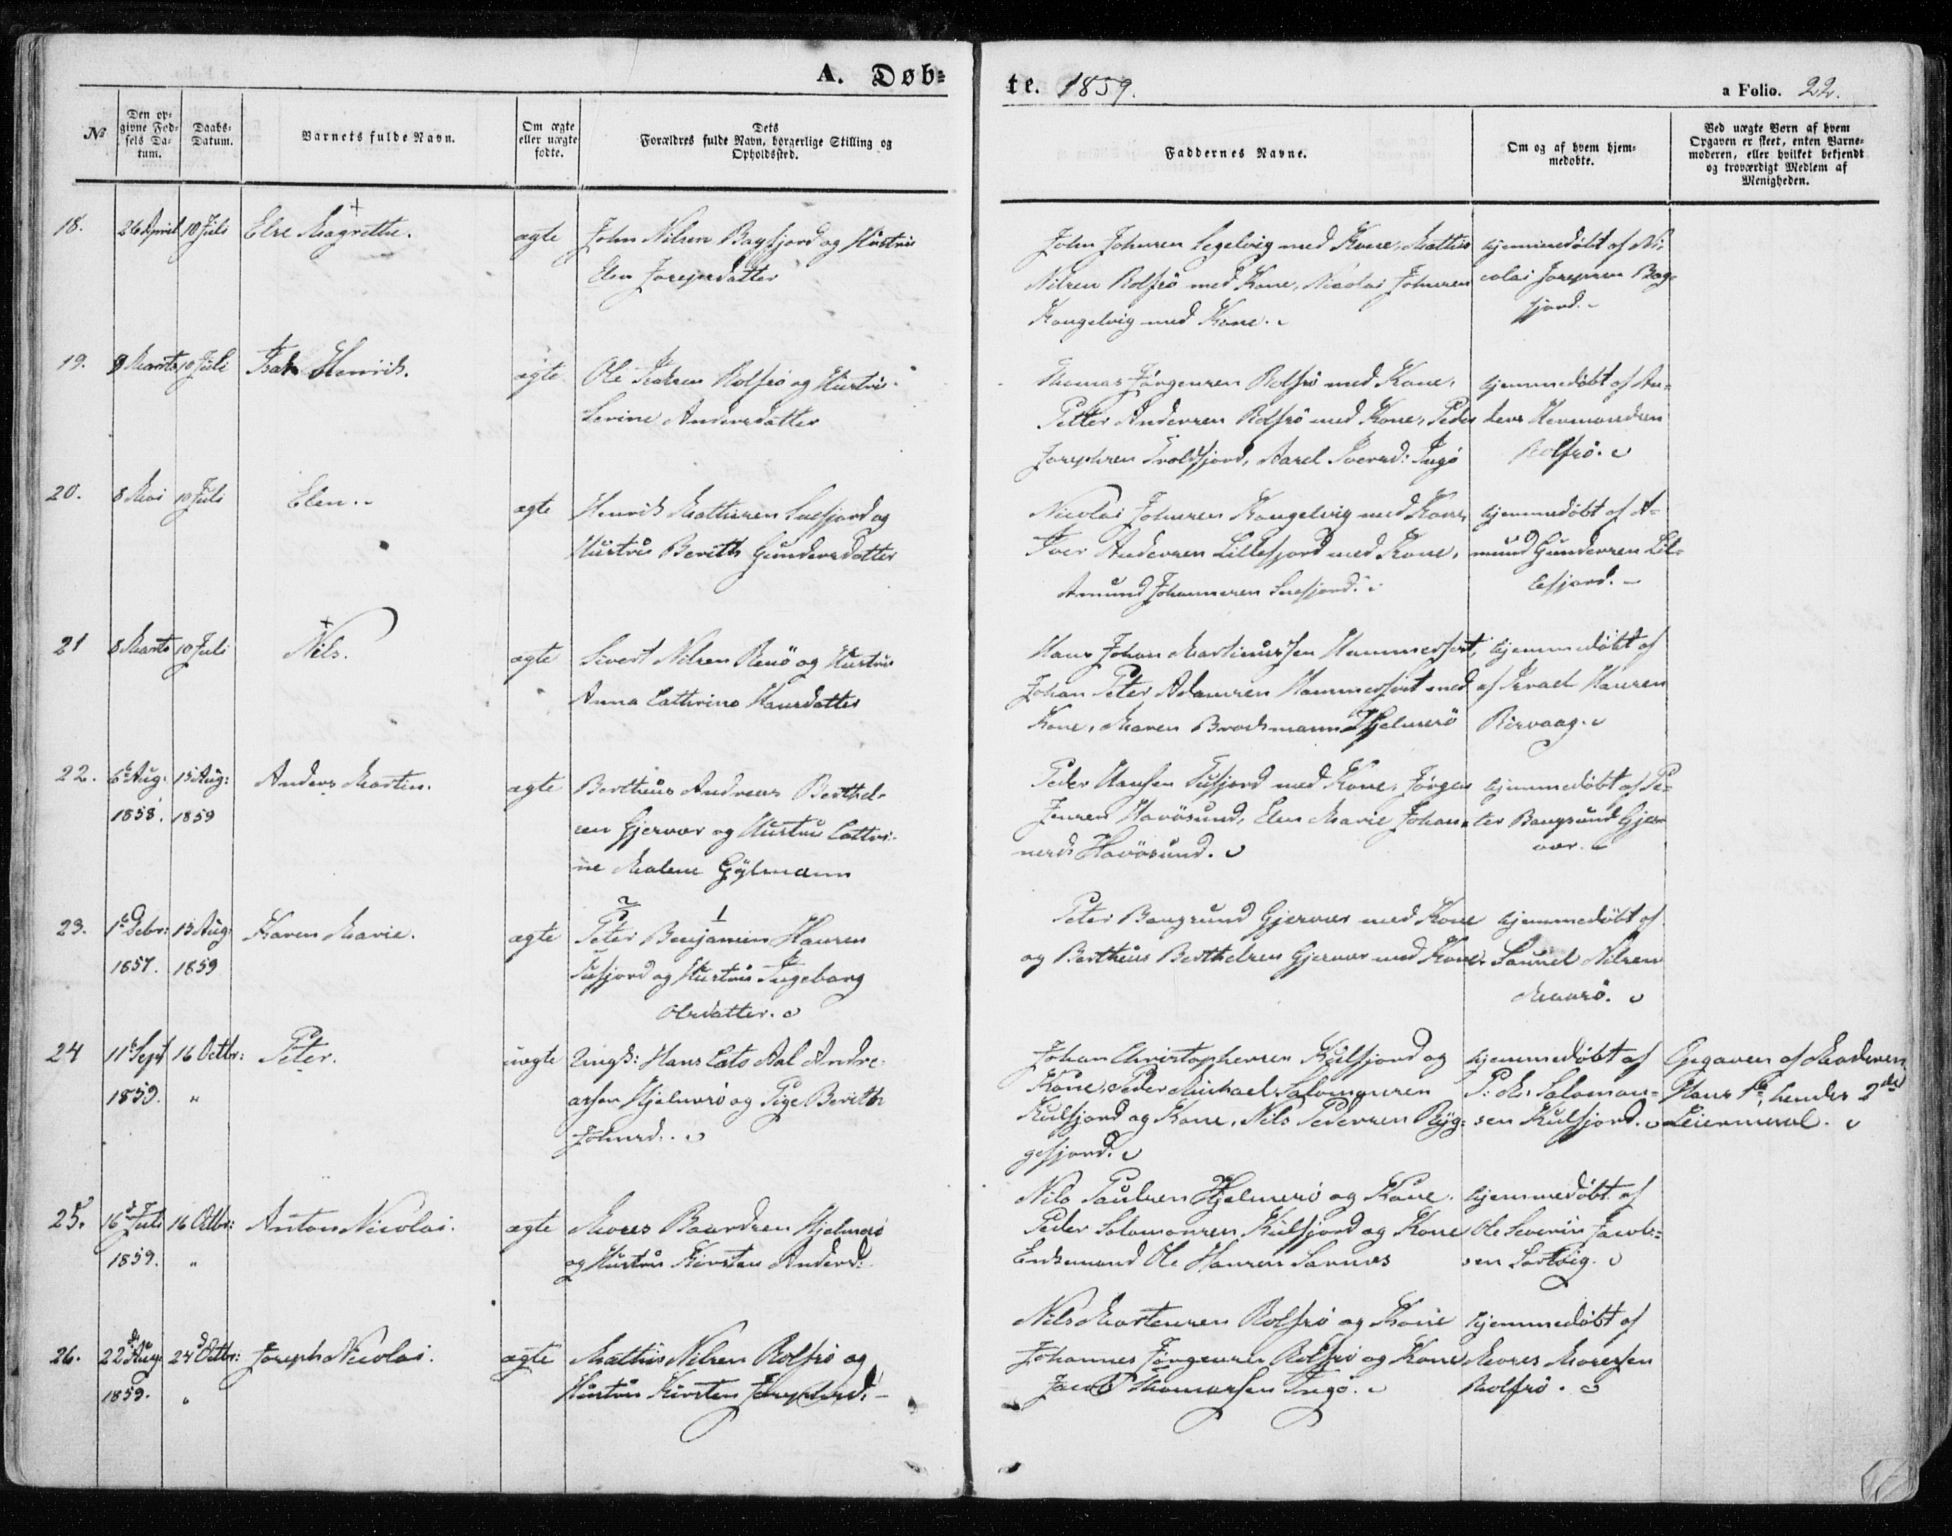 A. Døb=
te. 1859.
a Folio. 22.
№
Den op-
givne Fød-
sels Da-
tum.
Daabs-
Datum.
Barnets fulde Navn.
Om ægte
eller uægte
fødte.
Dets
Forældres fulde Navn, borgerlige Stilling og
Opholdssted.
Faddernes Navne.
Om og af hvem hjem-
medøbte.
Ved uægte Børn af hvem
Opgaven er skeet, enten Barne-
moderen, eller hvilket bekjendt
og troværdigt Medlem af
Menigheden.
18. 26 April 10 Juli Else Magrethe. ægte
John Nilsen Bagfjord og Hustrue
Elen Josepsdatter
John Johnsen Segelvig med Kone, Mathis
Nilsen Rolfsö med Kone, Nicolai Johnsen
Kongelvig med Kone.
hjemmedöbt af Ni-
colai Josepsen Bag-
fjord.
19. 9 Marts 10 Juli Henrik. ægte
Ole Rolfsö og Hustru
Serine Andersdatter
Thomas Jörgensen Rolfsö med Kone,
Petter Andersen Rolfsö med Kone, Peder
Josephsen Troldfjord, Ingö
hjemmedöbt af An-
ders
Rolfsö.
20. 8 Mai 10 Juli Elen. ægte
Henrik Mathisen Snefjord og
Hustru Berith Gundersdatter
Nicolai Johnsen Kongelvig med Kone,
Iver Andersen Lillefjord med Kone,
Amund Johannesen Snefjord.
hjemmedöbt af A-
mund Gundersen Lil-
lefjord.
21 8 Marts 10 Juli Nils. ægte
Sivert Nilsen Renö og Hustrue
Anna Cathrina Hansdatter
Hans Johan Martinussen Hammerfest,
Johan Peter Adamsen Hammerfest med
Kone, Maren Brochmann Hjelmsö
hjemmedöbt af
af Israel Hansen
22. 6te Aug: 15 Aug: Anders Martin. ægte
1858. 1859
Bertheus Andreas Berthel-
sen Gjesvær og Hustrue Cathri-
ne Malene Gylmann
Peder Hansen Tufjord med Kone, Jörgen
Jensen Havösund, Elen Marie Johan-
nesd. Havösund.
hjemmedöbt af Pe-
ter Bangsund Gjes-
vær.
23. 15 Aug: Karen Marie. ægte
1857. 1859
2 1
Peter Benjamin Hansen
Tufjord og Hustrue Ingeborg
Olesdatter.
Peter Bangsund Gjesvær med Kone
og Bertheus Berthelsen Gjesvær med Kone.
hjemmedöbt af
Nilsen
Maasö.
24 11te Sept 16 Octbr: Peter. uægte
1859. "
Ungk: Hans Cato Aal Andre-
assen Hjelmsö og Pige Berith
Johnsd.
Johan Christophersen Kulfjord og
Kone, Peder Michael Salomonsen
Kulfjord og Kone, Nils Pedersen Ryg-
gefjord.
hjemmedöbt af
P. M. Salomon-
sen Kulfjord.
Opgaven af Moderen.
Hans 1ste, hendes 2det
Leiermaal.
25. 16de Juli 16 Octbr: Anton Nicolai. ægte
1859. "
Moses Baardsen Hjelmsö
og Hustrue Kirsten Andersd:
Nils Paulsen Hjelmsö og Kone.
Peder Salomonsen Kulfjord og Kone
Enkemand Ole Hansen Sarnæs
hjemmedöbt af
Ole Severin Jacob-
sen
26. 22de Aug: 24de Octbr: Joseph Nicolai. ægte
1859. "
Mathis Nilsen Rolfsö og
Hustrue Kirsten Josephsd:
Nils Mortensen Rolfsö og Kone
Johannes Jörgensen Rolfsö og Kone
Jacob Thomassen Ingö.
hjemmedöbt af
Moses Mosessen
Rolfsö.